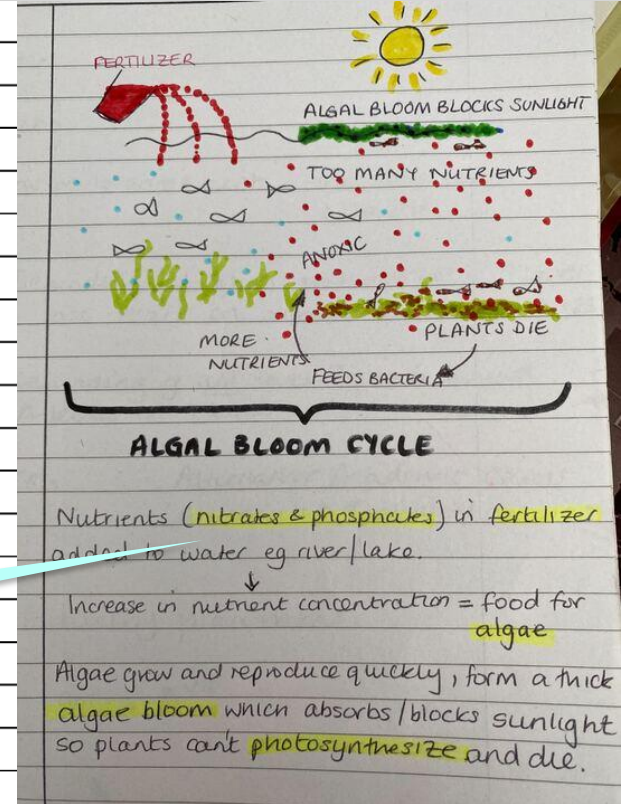 FERTILIZER
ALGAL BLOOM BLOCKS SUNLIGHT
TOO MANY NUTRIENTS
ANOXIC
MORE
NUTRIENTS
PLANTS DIE
FEEDS BACTERIA
ALGAL BLOOM CYCLE
Nutrients (nitrates & phosphates) in fertilizer
added to water eg river/lake.
↓
Increase in nutrient concentration = food for
algae
Algae grow and reproduce quickly, form a thick
algae bloom which absorbs/blocks sunlight
so plants can't photosynthesize and die.